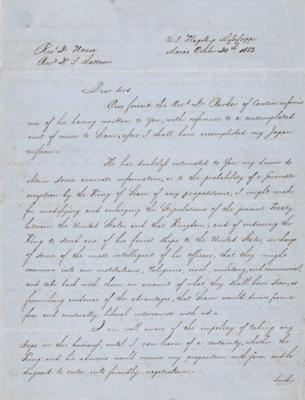 U.S. Flagship Mississippi
Revd. D. House
Macao October 20th 1853
Revd. S. Mattoon
Dear Sirs
Our friend the Revd. Dr. Parker of Canton informs
me of his having written to you, with reference to a contemplated
visit of mine to Siam, after I shall have accomplished my Japan
mission.
He has doubtless intimated to you my desire to
obtain some accurate information, as to the probability of a favorable
reception by the King of Siam of any propositions, I might make
for modifying and enlarging the stipulations of the present Treaty
between the United States and that Kingdom, and of inducing the
King to send one of his finest Ships to the United States, in charge
of some of the most intelligent of his officers, that they might
examine into our institutions, Religious, civil, military, and commercial,
and take back with them an account of what they shall have seen, as
furnishing evidence of the advantages, that Siam would derive from a
free and mutually liberal intercourse with us.
I am well aware of the impolicy of taking any
steps in this business, until I can learn of a certainty, whether the
King and his advisers would receive my proposition with favor, and be
disposed to enter into friendly negotiation.